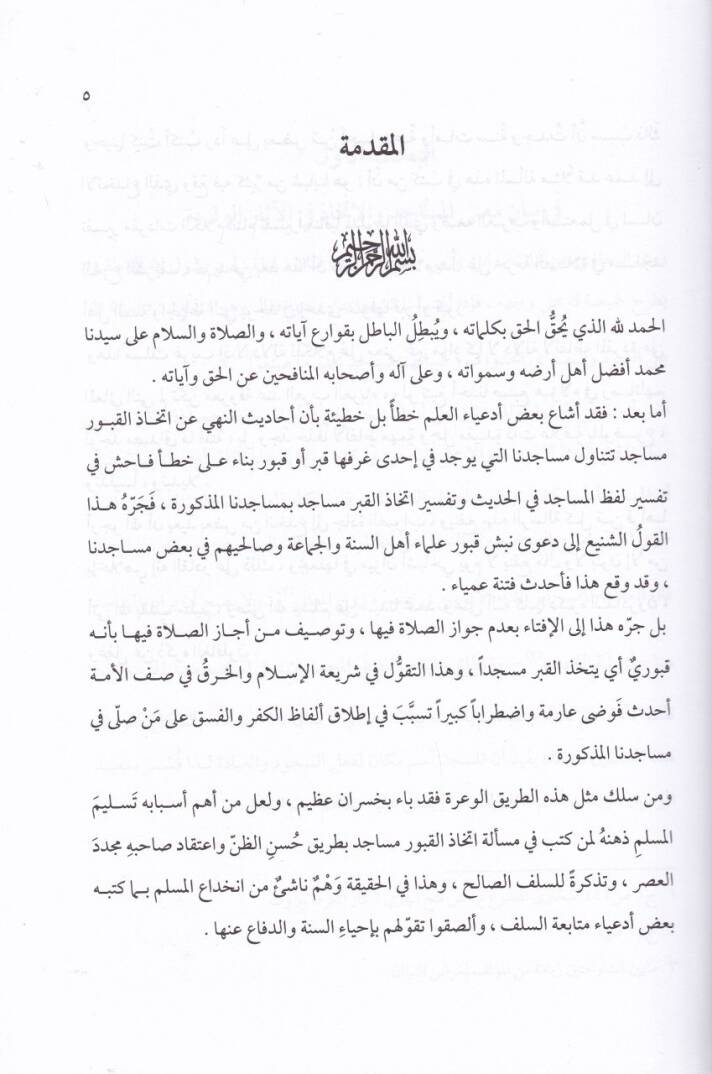 ٥
المقدمة
بسم الله الرحمن الرحيم
الحمد لله الذي يُحقُّ الحق بكلماته ، ويُبطِلُ الباطل بقوارع آياته ، والصلاة والسلام على سيدنا
محمد أفضل أهل أرضه وسمواته ، وعلى آله وأصحابه المنافحين عن الحق وآياته .
أما بعد : فقد أشاع بعض أدعياء العلم خطأ بل خطيئة بأن أحاديث النهي عن اتخاذ القبور
مساجد تتناول مساجدنا التي يوجد في إحدى غرفها قبر أو قبور بناء على خطأ فاحش في
تفسير لفظ المساجد في الحديث وتفسير اتخاذ القبر مساجد بمساجدنا المذكورة ، فَجَرّهُ هذا
القولُ الشنيع إلى دعوى نبش قبور علماء أهل السنة والجماعة وصالحيهم في بعض مساجدنا
، وقد وقع هذا فأحدث فتنة عمياء .
بل جرّه هذا إلى الإفتاء بعدم جواز الصلاة فيها ، وتوصيف من أجاز الصلاة فيها بأنه
قبوريٌ أي يتخذ القبر مسجداً ، وهذا التقوُّل في شريعة الإسلام والخرقُ في صف الأمة
أحدث فَوضى عارمة واضطراباً كبيراً تسبَّبَ في إطلاق ألفاظ الكفر والفسق على مَنْ صلّى في
مساجدنا المذكورة .
ومن سلك مثل هذه الطريق الوعرة فقد باء بخسران عظيم ، ولعل من أهم أسبابه تَسليمَ
المسلمِ ذهنهُ لمن كتب في مسألة اتخاذ القبور مساجد بطريق حُسنِ الظنّ واعتقاد صاحبهِ مجددَ
العصر ، وتذكرةً للسلف الصالح ، وهذا في الحقيقة وَهْمٌ ناشئٌ من انخداع المسلم بما كتبه
بعض أدعياء متابعة السلف ، وألصقوا تقوّلهم بإحياءِ السنة والدفاع عنها .